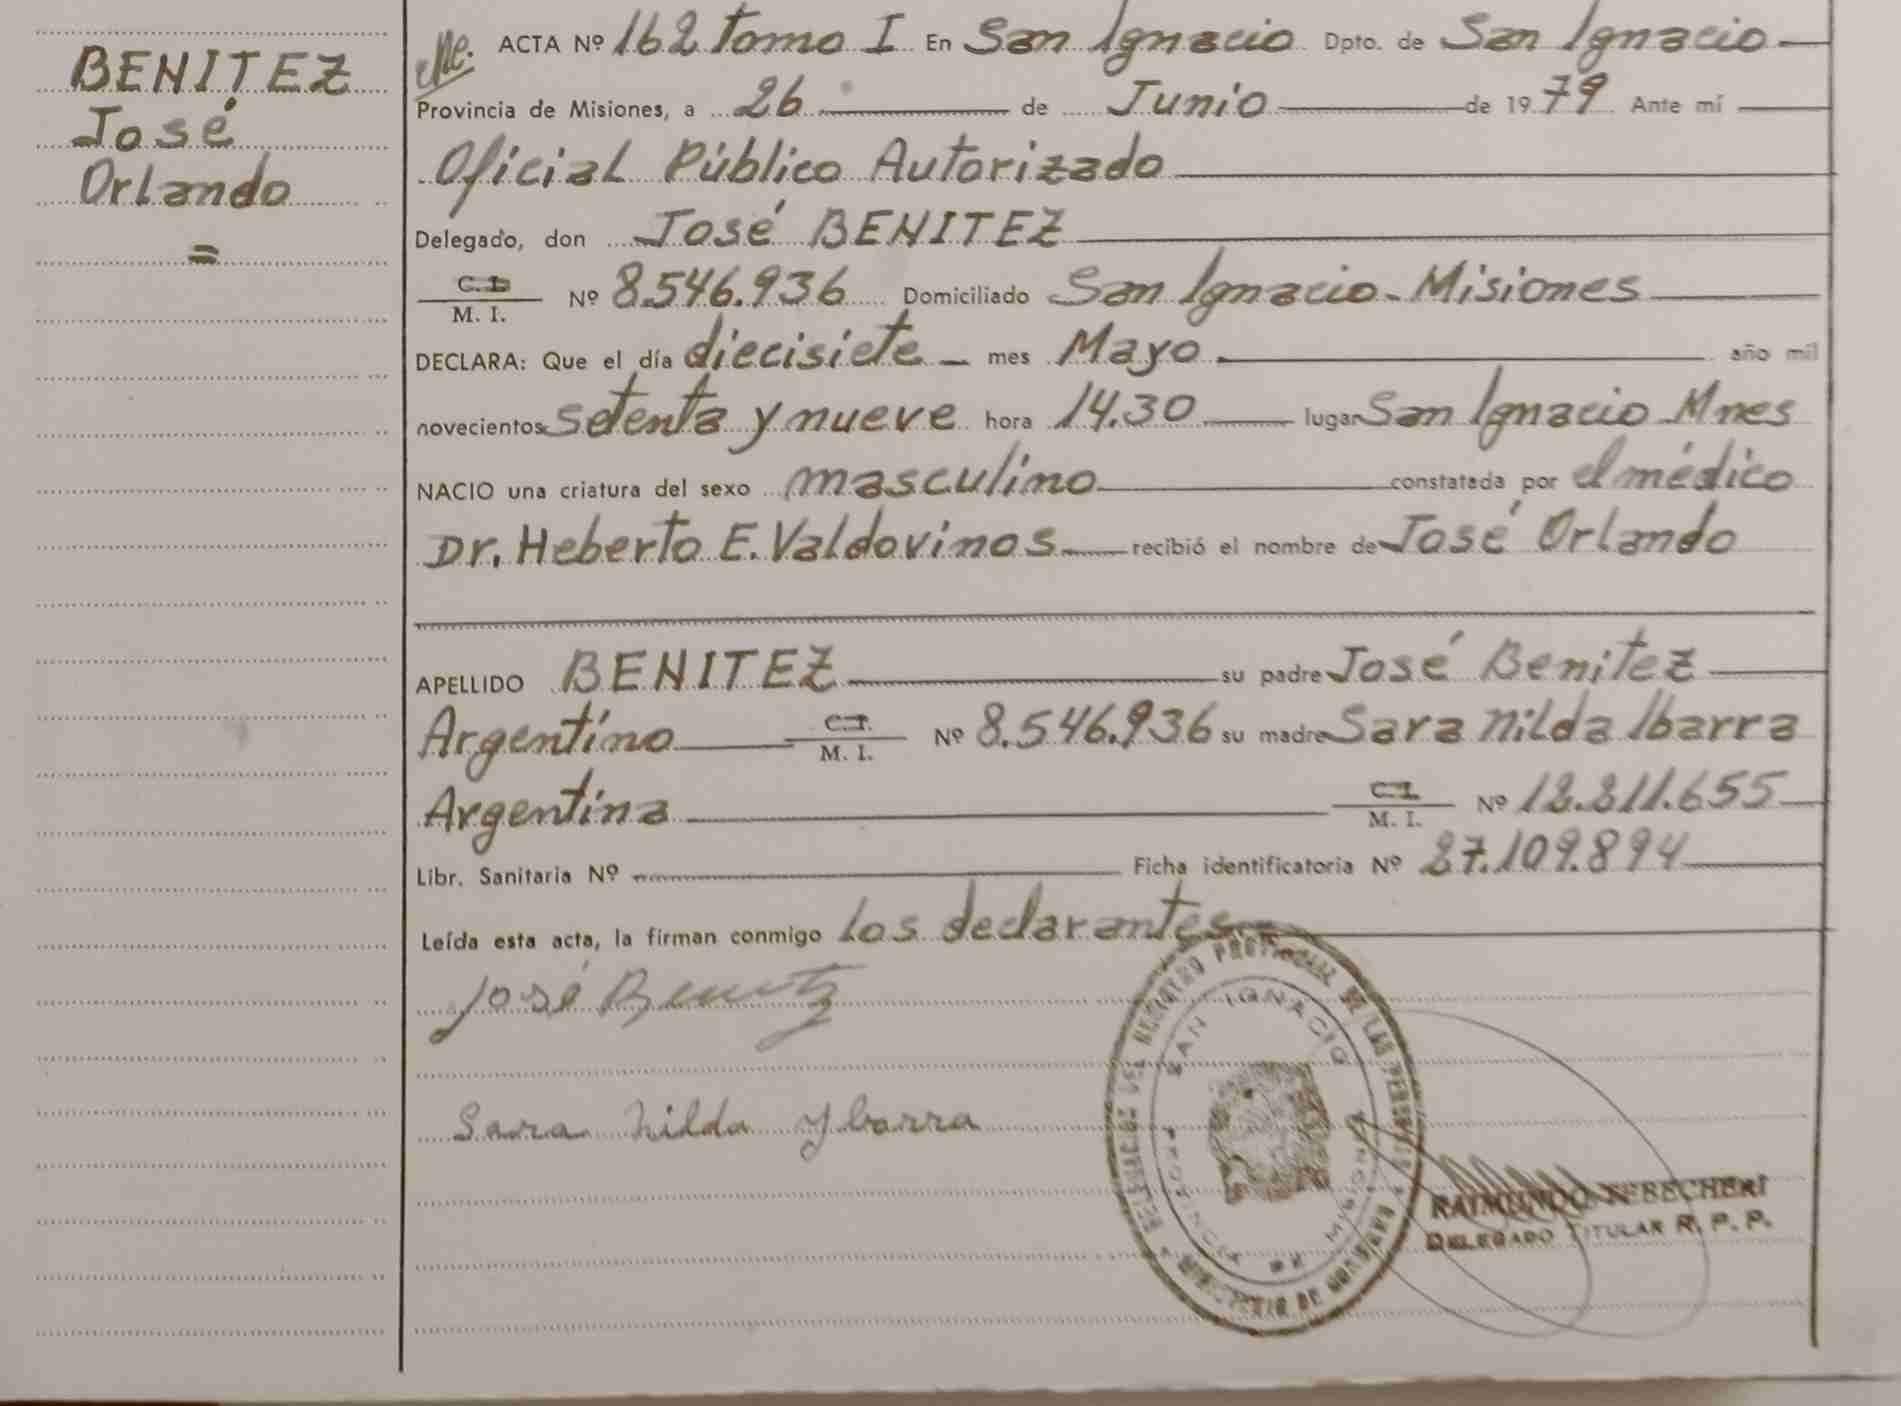 BENITEZ
José
Orlando
=
ACTA Nº 162 Tomo I En San Ignacio Dpto. de San Ignacio
Provincia de Misiones, a 26 de Junio de 1979 Ante mí
Oficial Público Autorizado
Delegado, don José BENITEZ
C.I.
M. I. Nº 8.546.936 Domiciliado San Ignacio - Misiones
DECLARA: Que el día diecisiete mes Mayo año mil
novecientos setenta y nueve hora 14.30 lugar San Ignacio Mnes
NACIO una criatura del sexo masculino constatada por el médico
Dr. Heberto E. Valdovinos recibió el nombre de José Orlando
APELLIDO BENITEZ su padre José Benitez
Argentino C.I.
M. I. Nº 8.546.936 su madre Sara Nilda Ibarra
Argentina C.I.
M. I. Nº 12.211.655
Libr. Sanitaria Nº Ficha identificatoria Nº 27.109.894
Leída esta acta, la firman conmigo los declarantes
José Benitez
Sara Nilda Ybarra
DELEGACION DEL REGISTRO PROVINCIAL DE LAS PERSONAS
MINISTERIO DE GOBIERNO
SAN IGNACIO
PROVINCIA DE MISIONES
RAIMUNDO TEBECHERI
DELEGADO TITULAR R. P. P.